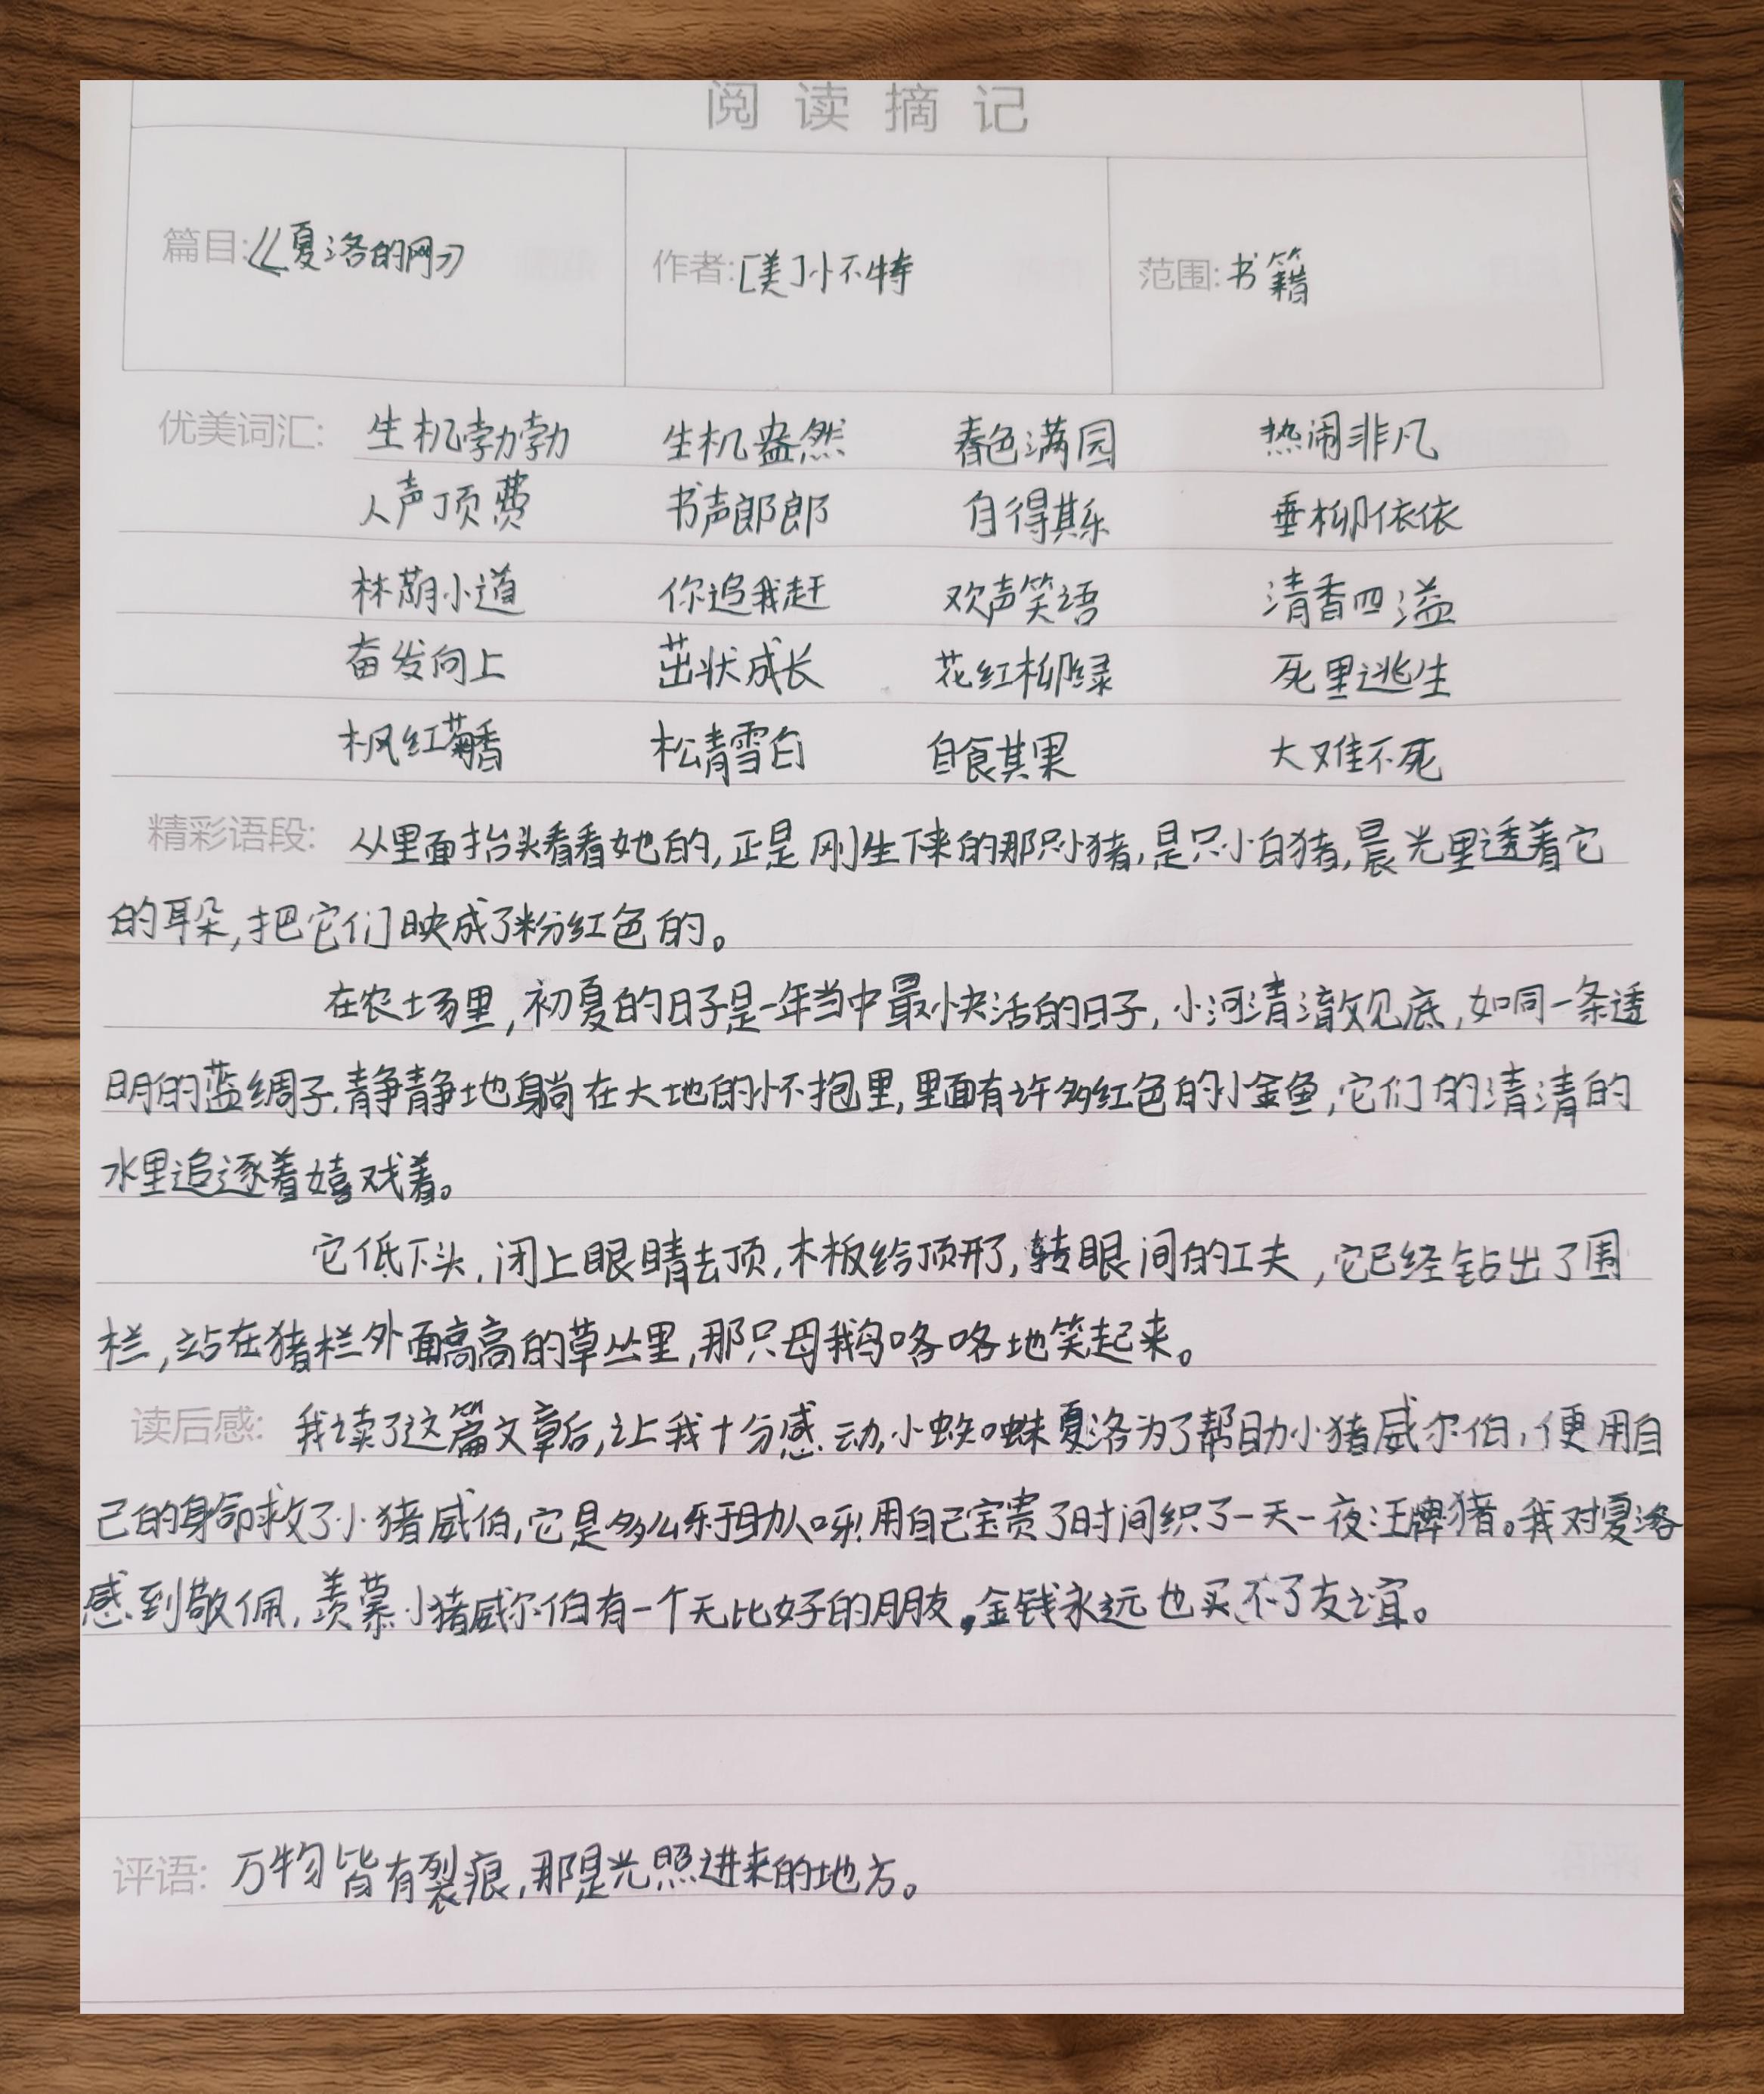 阅读摘记
篇目:《夏洛的网》 作者:[美]小不特 范围:书籍
优美词汇: 生机勃勃 生机盎然 春色满园 热闹非凡
人声顶费 书声郎郎 自得其乐 垂柳依依
林荫小道 你追我赶 欢声笑语 清香四溢
奋发向上 茁状成长 花红柳绿 死里逃生
枫红菊香 松青雪白 自食其果 大难不死
精彩语段: 从里面抬头看看她的,正是刚生下来的那只小猪,是只小白猪,晨光里透着它
的耳朵,把它们映成了粉红色的。
在农场里,初夏的日子是一年当中最快活的日子,小河清澈见底,如同一条透
明的蓝绸子,静静地躺在大地的怀抱里,里面有许多红色的小金鱼,它们的清清的
水里追逐着嬉戏着。
它低下头,闭上眼睛去顶,木板给顶开了,转眼间的工夫,它已经钻出了围
栏,站在猪栏外面高高的草丛里,那只母鹅咯咯地笑起来。
读后感: 我读了这篇文章后,让我十分感动,小蜘蛛夏洛为了帮助小猪威尔伯,便用自
己的身命救了小猪威伯,它是多么乐于助人呀!用自己宝贵了时间织了一天一夜汪牌猪。我对夏洛
感到敬佩,羡慕小猪威尔伯有一个无比好的朋友,金钱永远也买不了友谊。
评语: 万物皆有裂痕,那是光照进来的地方。